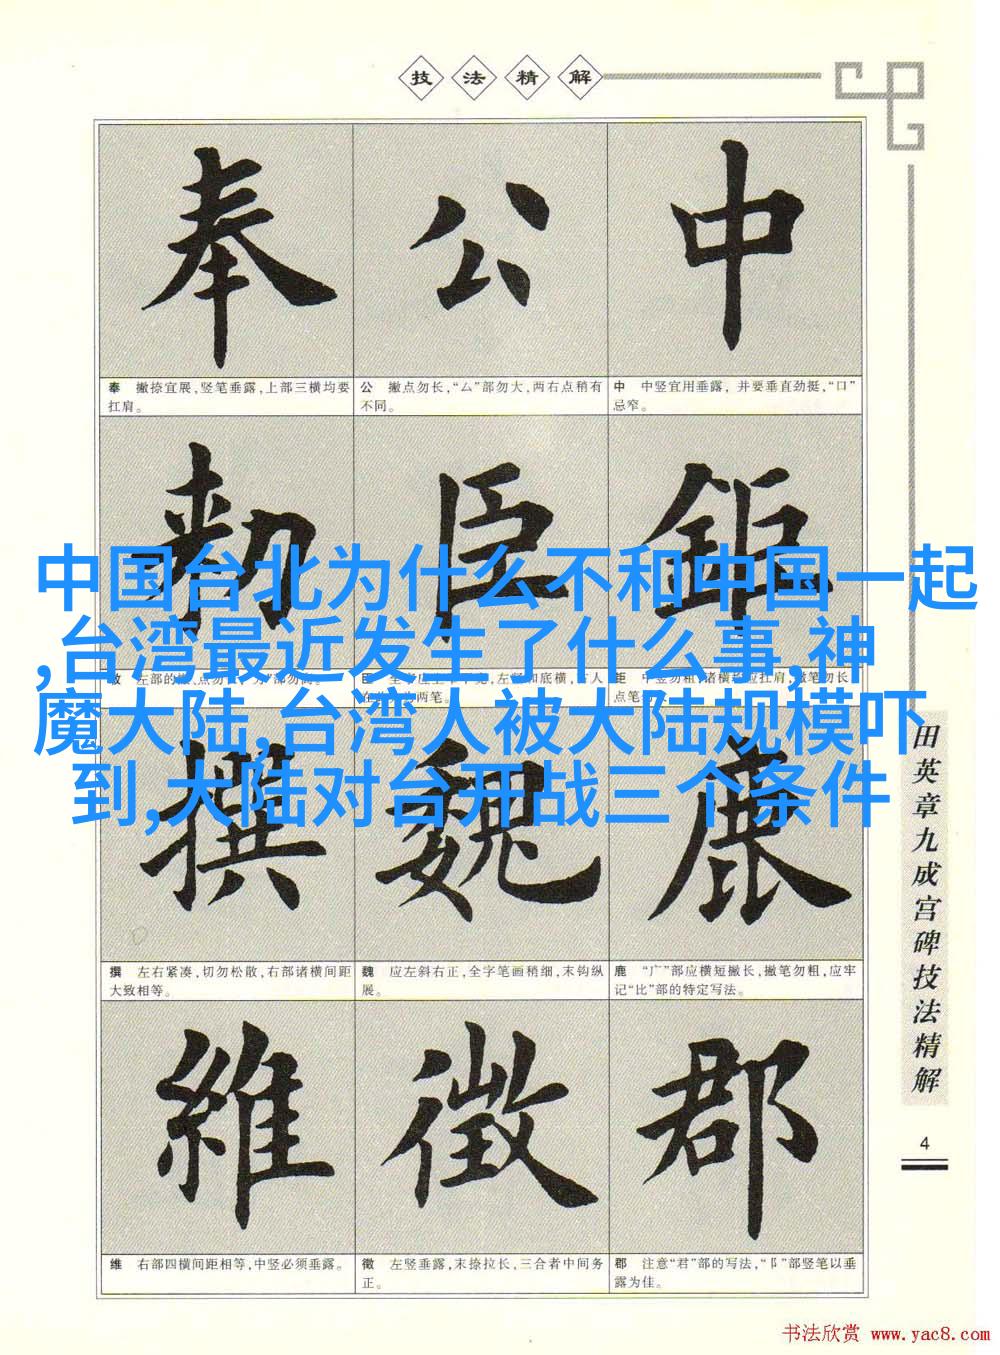 技法精解
奉
公
中
奉 撇捺宜展,竖笔垂露,上部三横均要
扛肩。
公 撇点勿长,“厶”部勿大,两右点稍有
不同。
中 中竖宜用垂露,并要垂直劲挺,“口”
忌窄。
勅
臣
鉅
中国台北为什么不和中国一起
,台湾最近发生了什么事,神
魔大陆,台湾人被大陆规模吓
到,大陆对台开战三个条件
撰
魏
鹿
撰 左右紧凑,切勿松散,右部诸横间距
大致相等。
魏 应左斜右正,全字笔画稍细,末钩纵
展。
鹿 “广”部应横短撇长,撇笔勿粗,应牢
记“比”部的特定写法。
維
徵
郡
维 右部四横间距相等,中竖必须垂露。
徵 左竖垂露,末捺拉长,三合者中间务
正。
郡 注意“君”部的写法,“阝”部竖笔以垂
露为佳。
田英章九成宫碑技法精解
4
书法欣赏 www.yac8.com